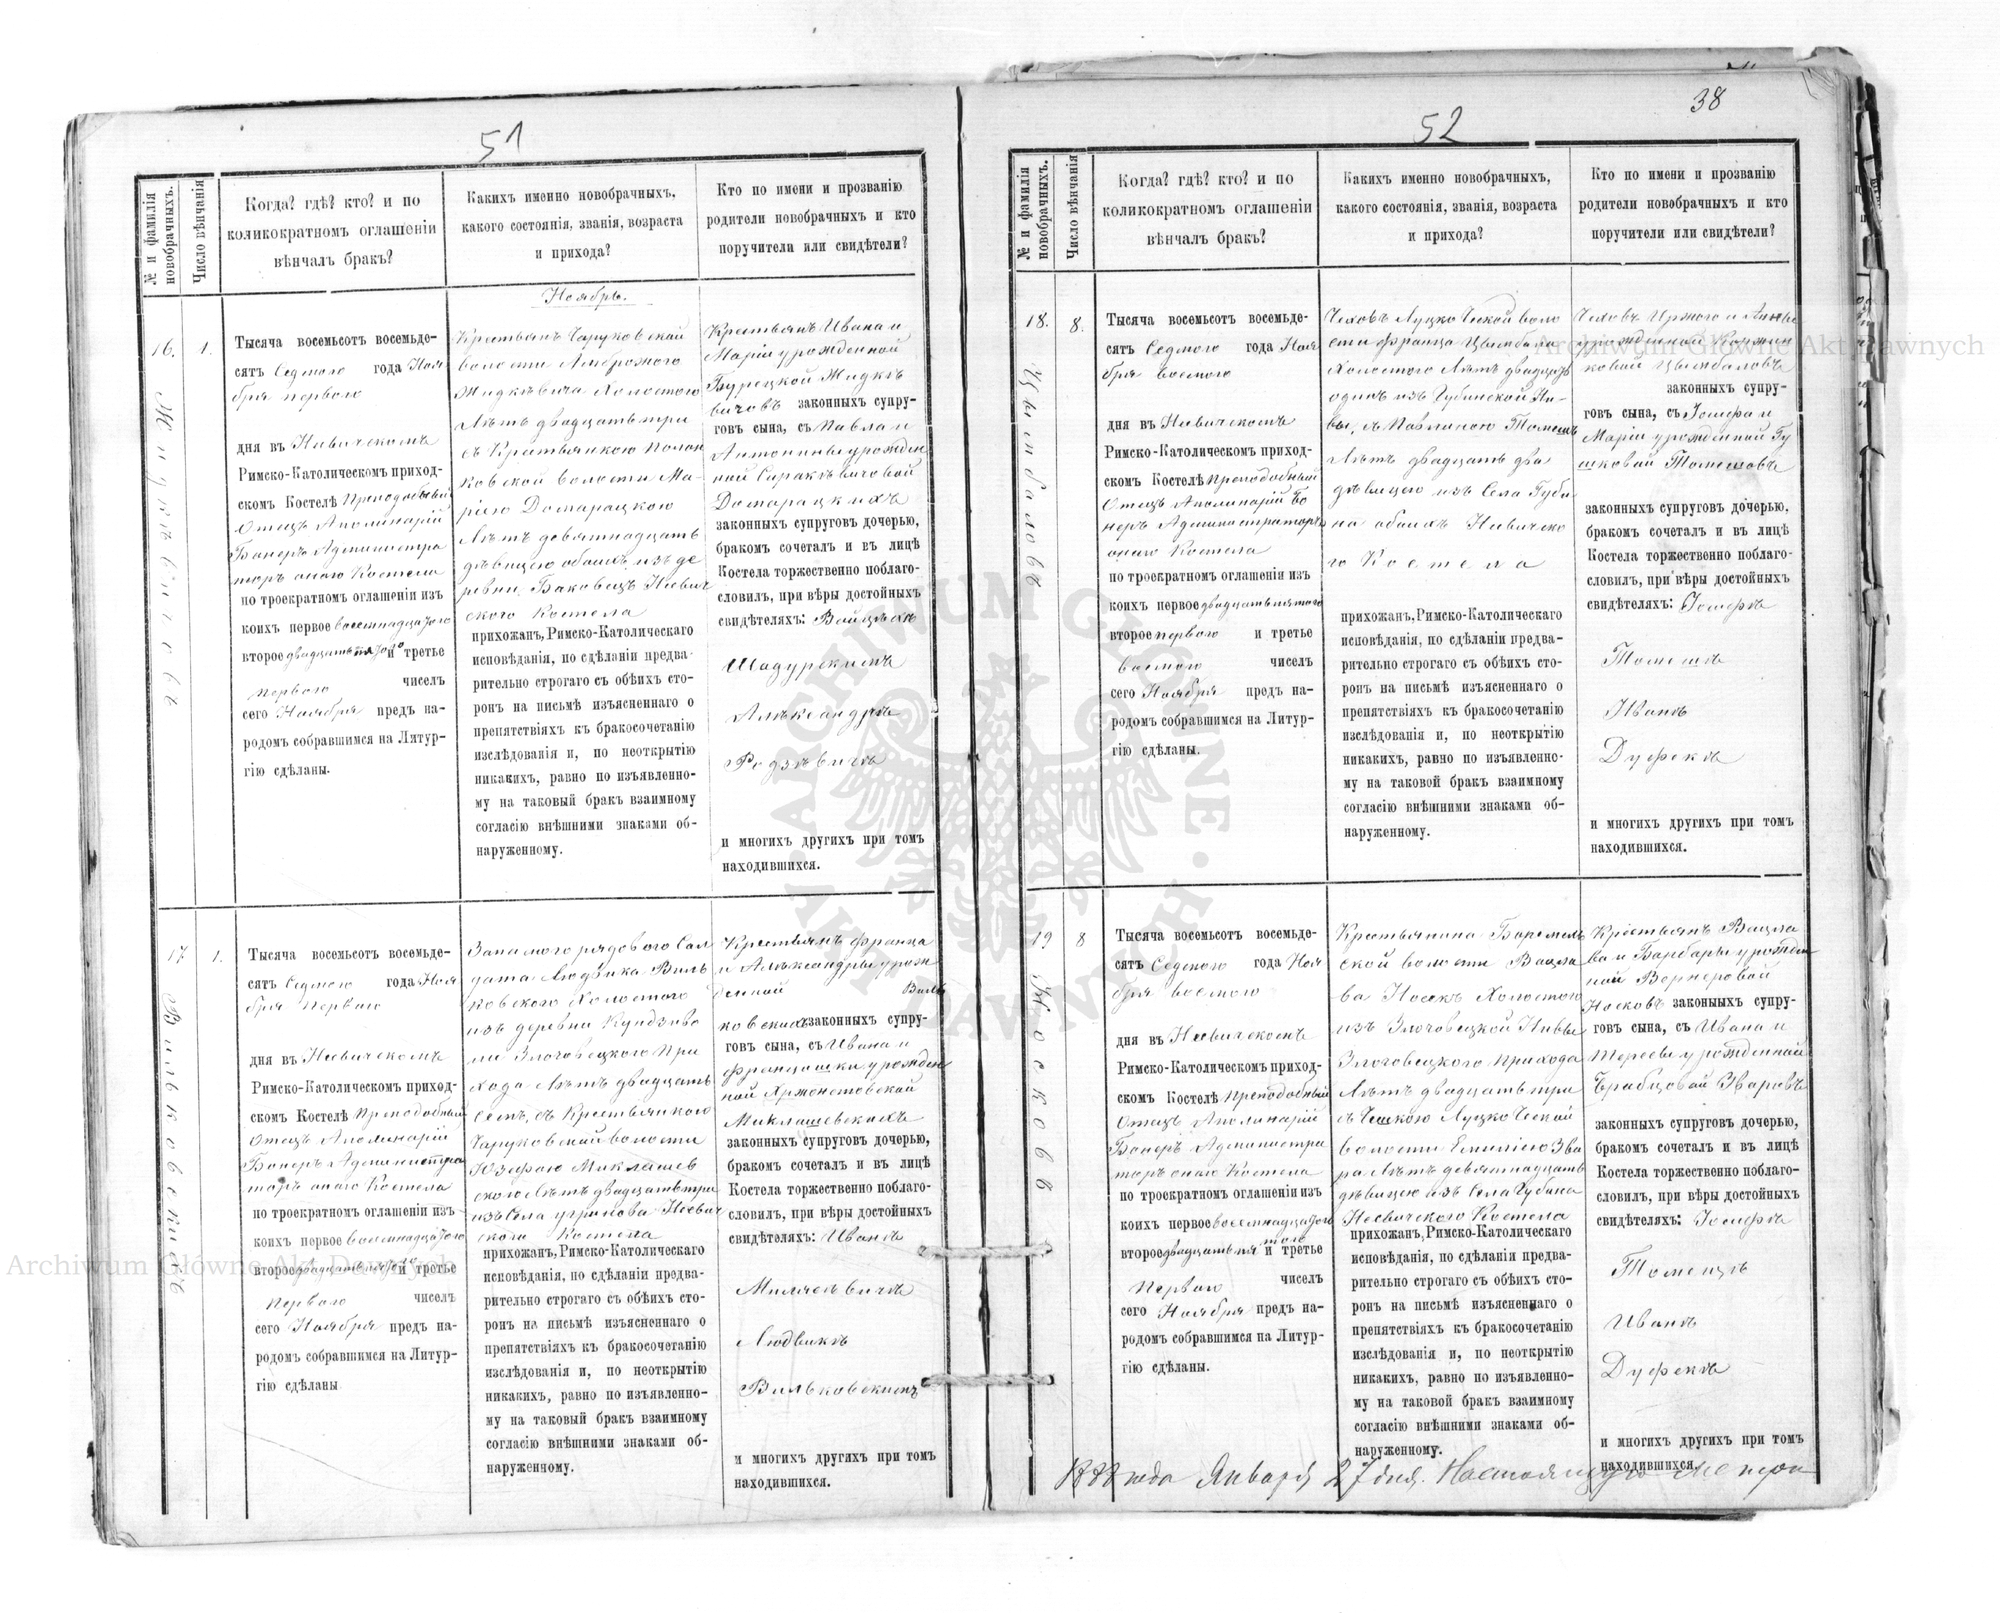 51
№ и фамилія новобрачныхъ.
Число вѣнчанія
Когда? гдѣ? кто? и по
коликократномъ оглашеніи
вѣнчалъ бракъ?
Какихъ именно новобрачныхъ,
какого состоянія, званія, возраста
и прихода?
Кто по имени и прозванію
родители новобрачныхъ и кто
поручители или свидѣтели?
16.
1.
Тысяча восемьсотъ восемьде-
сятъ Седмого года Ноя
бря первого
дня въ Нѣвичскомъ
Римско-Католическомъ приход-
скомъ Костелѣ Преподобный
Отецъ Аполинарій
Бонеръ Администра
торъ оного Костела
по троекратномъ оглашеніи изъ
коихъ первое восемнадцатого
второе двадцать пятого и третье
первого чиселъ
сего Ноября предъ на-
родомъ собравшимся на Литур-
гію сдѣланы.
Ноябрь.
Крестьянъ Чаруковской
волости Амброжого
Жидкѣвича Холостого
Лѣтъ двадцать три
съ Крестьянкою Полон
ковской волости Ма-
рією Домарацкою
Лѣтъ девятнадцать
дѣвицею обоихъ изъ де
ревни Баковецъ Несвич
ского Костела
прихожан, Римско-Католическаго
исповѣданія, по сдѣланіи предва-
рительно строгаго съ обѣихъ сто-
ронъ на письмѣ изъясненнаго о
препятствіяхъ къ бракосочетанію
изслѣдованія и, по неоткрытію
никакихъ, равно по изъявленно-
му на таковый бракъ взаимному
согласію внѣшними знаками об-
наруженному.
Крестьянъ Ивана и
Маріи урожденной
Турецкой Жидкѣ
вичовъ законныхъ супру-
говъ сына, съ Павла и
Антонины урожден
ной Сиракѣвичовой
Домарацкихъ
законныхъ супруговъ дочерью,
бракомъ сочеталъ и въ лицѣ
Костела торжественно поблаго-
словилъ, при вѣры достойныхъ
свидѣтеляхъ: Войцѣхъ
Шадурскимъ
Алѣксандръ
Родзѣвичъ
и многихъ другихъ при томъ
находившихся.
17
1.
Вильковскихъ
Тысяча восемьсотъ восемьде-
сятъ Седмого года Ноя
бря первого
дня въ Несвичскомъ
Римско-Католическомъ приход-
скомъ Костелѣ Преподобный
Отецъ Аполинарій
Бонеръ Администра
торъ оного Костела
по троекратномъ оглашеніи изъ
коихъ первое восемнадцатого
второе двадцать пятого и третье
первого чиселъ
сего Ноября предъ на-
родомъ собравшимся на Литур-
гію сдѣланы
Запасного рядового Сол
дата Людвика Виль
ковского Холостого
изъ деревни Кундзиво
ли Злочовецкого При
хода Лѣтъ двадцать
семъ, съ Крестьянкою
Чаруковской волости
Юзефою Миклашев
скою Лѣтъ двадцать три
изъ Села Угринова Несвич
ского Костела
прихожан, Римско-Католическаго
исповѣданія, по сдѣланіи предва-
рительно строгаго съ обѣихъ сто-
ронъ на письмѣ изъясненнаго о
препятствіяхъ къ бракосочетанію
изслѣдованія и, по неоткрытію
никакихъ, равно по изъявленно-
му на таковый бракъ взаимному
согласію внѣшними знаками об-
наруженному.
Крестьянъ Франца
и Алѣксандры урож
денной Виль
ковскихъ законныхъ супру-
говъ сына, съ Ивана и
Францишки урожден
ной
Миклашевскихъ
законныхъ супруговъ дочерью,
бракомъ сочеталъ и въ лицѣ
Костела торжественно поблаго-
словилъ, при вѣры достойныхъ
свидѣтеляхъ: Иванъ
Милясѣвичъ
Людвикъ
Вильковскимъ
и многихъ другихъ при томъ
находившихся.
38
52
№ и фамилія новобрачныхъ.
Число вѣнчанія
Когда? гдѣ? кто? и по
коликократномъ оглашеніи
вѣнчалъ бракъ?
Какихъ именно новобрачныхъ,
какого состоянія, званія, возраста
и прихода?
Кто по имени и прозванію
родители новобрачныхъ и кто
поручители или свидѣтели?
18.
8.
Цымбаловъ
Тысяча восемьсотъ восемьде-
сятъ Седмого года Ноя
бря восмого
дня въ Несвичскомъ
Римско-Католическомъ приход-
скомъ Костелѣ Преподобный
Отецъ Аполинарій Бо
неръ Администраторъ
оного Костела
по троекратномъ оглашеніи изъ
коихъ первое двадцать пятого
второе первого и третье
восмого чиселъ
сего Ноября предъ на-
родомъ собравшимся на Литур-
гію сдѣланы.
Чеховъ Луцко Ческой воло
сти Франца Цымбала
Холостого Лѣтъ двадцать
одинъ изъ Губинской Ни-
вы, съ Павлиною Томешъ
Лѣтъ двадцать два
дѣвицею изъ Села Губи
на обоихъ Несвичско
го Костела
прихожан, Римско-Католическаго
исповѣданія, по сдѣланіи предва-
рительно строгаго съ обѣихъ сто-
ронъ на письмѣ изъясненнаго о
препятствіяхъ къ бракосочетанію
изслѣдованія и, по неоткрытію
никакихъ, равно по изъявленно-
му на таковой бракъ взаимному
согласію внѣшними знаками об-
наруженному.
Чеховъ Иржого и
урожденной
ковой Цымбаловъ
законныхъ супру-
говъ сына, съ Іосифа и
Маріи урожденной Гу
шковой Томешовъ
законныхъ супруговъ дочерью,
бракомъ сочеталъ и въ лицѣ
Костела торжественно поблаго-
словилъ, при вѣры достойныхъ
свидѣтеляхъ: Іосифъ
Томешъ
Иванъ
Дуфекъ
и многихъ другихъ при томъ
находившихся.
19
8
Носковъ
Тысяча восемьсотъ восемьде-
сятъ Седмого года Ноя
бря восмого
дня въ Несвичскомъ
Римско-Католическомъ приход-
скомъ Костелѣ Преподобный
Отецъ Аполинарій
Бонеръ Администра
торъ оного Костела
по троекратномъ оглашеніи изъ
коихъ первое восемнадцатого
второе двадцать пятого и третье
первого чиселъ
сего Ноября предъ на-
родомъ собравшимся на Литур-
гію сдѣланы.
Крестьянина Боремель
ской волости Вацла
ва Носекъ Холостого
изъ Злочовецкой Нивы
Злочовецкого прихода
Лѣтъ двадцать три
съ Чешкою Луцко Ческой
волости Емилією Зва
ра Лѣтъ девятнадцать
дѣвицею изъ Села Губина
Несвичского Костела
прихожан, Римско-Католическаго
исповѣданія, по сдѣланіи предва-
рительно строгаго съ обѣихъ сто-
ронъ на письмѣ изъясненнаго о
препятствіяхъ къ бракосочетанію
изслѣдованія и, по неоткрытію
никакихъ, равно по изъявленно-
му на таковой бракъ взаимному
согласію внѣшними знаками об-
наруженному.
Крестьянъ Вацла
ва и Барбары урожден
ной Вернеровой
Носковъ законныхъ супру-
говъ сына, съ Ивана и
Терезы урожденной
Зваровъ
законныхъ супруговъ дочерью,
бракомъ сочеталъ и въ лицѣ
Костела торжественно поблаго-
словилъ, при вѣры достойныхъ
свидѣтеляхъ: Іосифъ
Томешъ
Иванъ
Дуфекъ
и многихъ другихъ при томъ
находившихся.
1888 года Января 27 дня. Настоящую метри
Archiwum Główne Akt Dawnych
Archiwum Główne Akt Dawnych
ARCHIWUM GŁÓWNE AKT DAWNYCH